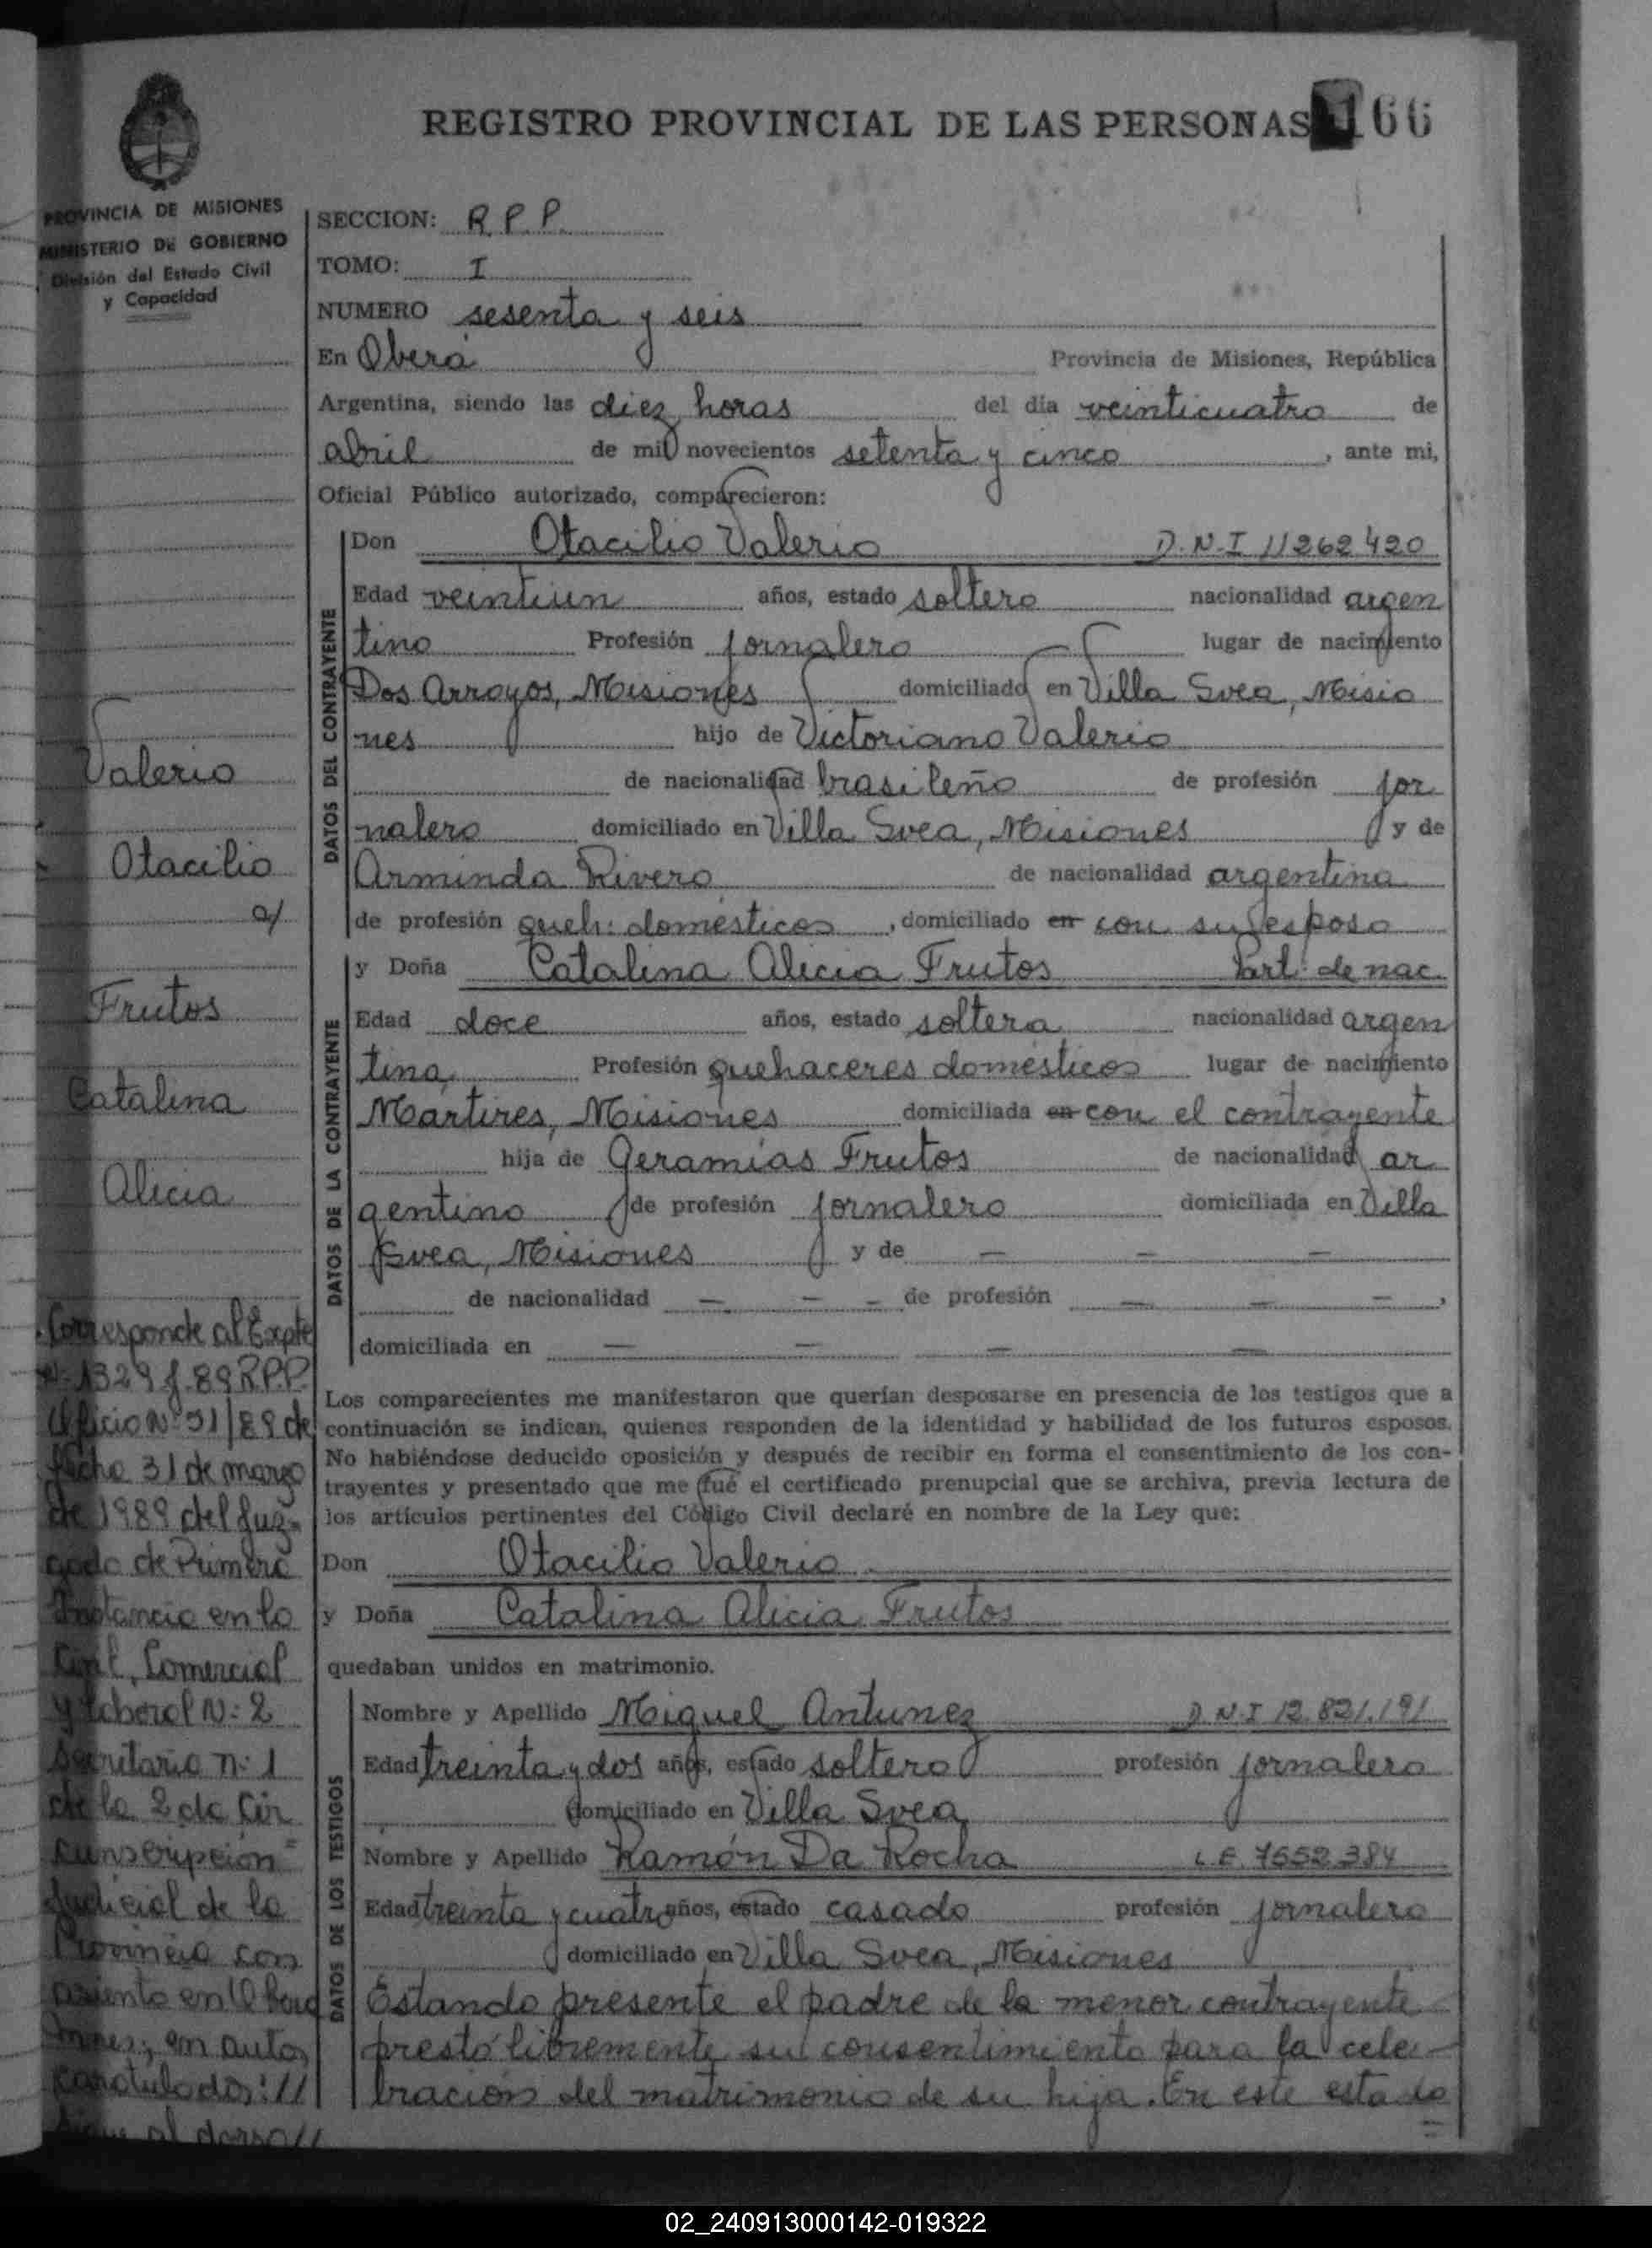 REGISTRO PROVINCIAL DE LAS PERSONAS 166
PROVINCIA DE MISIONES
MINISTERIO DE GOBIERNO
División del Estado Civil
y Capacidad
SECCION: R.P.P.
TOMO: I
NUMERO sesenta y seis
En Oberá Provincia de Misiones, República
Argentina, siendo las diez horas del día veinticuatro de
abril de mil novecientos setenta y cinco, ante mi,
Oficial Público autorizado, comparecieron:
DATOS DEL CONTRAYENTE
Don Otacilio Valerio D.N.I 11262420
Edad veintiun años, estado soltero nacionalidad argen
tino Profesión jornalero lugar de nacimiento
Dos Arroyos, Misiones domiciliado en Villa Svea, Misio
nes hijo de Victoriano Valerio
de nacionalidad brasileño de profesión jor
nalero domiciliado en Villa Svea, Misiones y de
Arminda Rivero de nacionalidad argentina
de profesión queh: domésticos, domiciliado en con su esposo
DATOS DE LA CONTRAYENTE
y Doña Catalina Alicia Frutos Part: de nac.
Edad doce años, estado soltera nacionalidad argen
tina Profesión quehaceres domésticos lugar de nacimiento
Mártires, Misiones domiciliada en con el contrayente
hija de Geramías Frutos de nacionalidad ar
gentino de profesión jornalero domiciliada en Villa
Svea, Misiones y de — — —
de nacionalidad — — — de profesión — — — ,
domiciliada en — — — —
Los comparecientes me manifestaron que querían desposarse en presencia de los testigos que a
continuación se indican, quienes responden de la identidad y habilidad de los futuros esposos.
No habiéndose deducido oposición y después de recibir en forma el consentimiento de los con-
trayentes y presentado que me fué el certificado prenupcial que se archiva, previa lectura de
los artículos pertinentes del Código Civil declaré en nombre de la Ley que:
Don Otacilio Valerio
y Doña Catalina Alicia Frutos
quedaban unidos en matrimonio.
DATOS DE LOS TESTIGOS
Nombre y Apellido Miguel Antunez D.N.I 12.821.191
Edad treinta y dos años, estado soltero profesión jornalero
domiciliado en Villa Svea
Nombre y Apellido Ramón Da Rocha L.E. 7552384
Edad treinta y cuatro años, estado casado profesión jornalero
domiciliado en Villa Svea, Misiones
Estando presente el padre de la menor contrayente
prestó libremente su consentimiento para la cele-
bración del matrimonio de su hija. En este estado
=
Valerio
Otacilio
a/
Frutos
Catalina
Alicia
Corresponde al Expte
Nº 1329 f. 89 R.P.P.
Oficio Nº 31/89 de
fecha 31 de marzo
de 1989 del Juz-
gado de Primera
Instancia en lo
Civil, Comercial
y Laboral N: 2
Secretario n: 1
de la 2 da Cir
cunscripción
Judicial de la
Provincia con
asiento en Oberá
Mnes; en autos
caratulados: //
sigue al dorso //
02_240913000142-019322